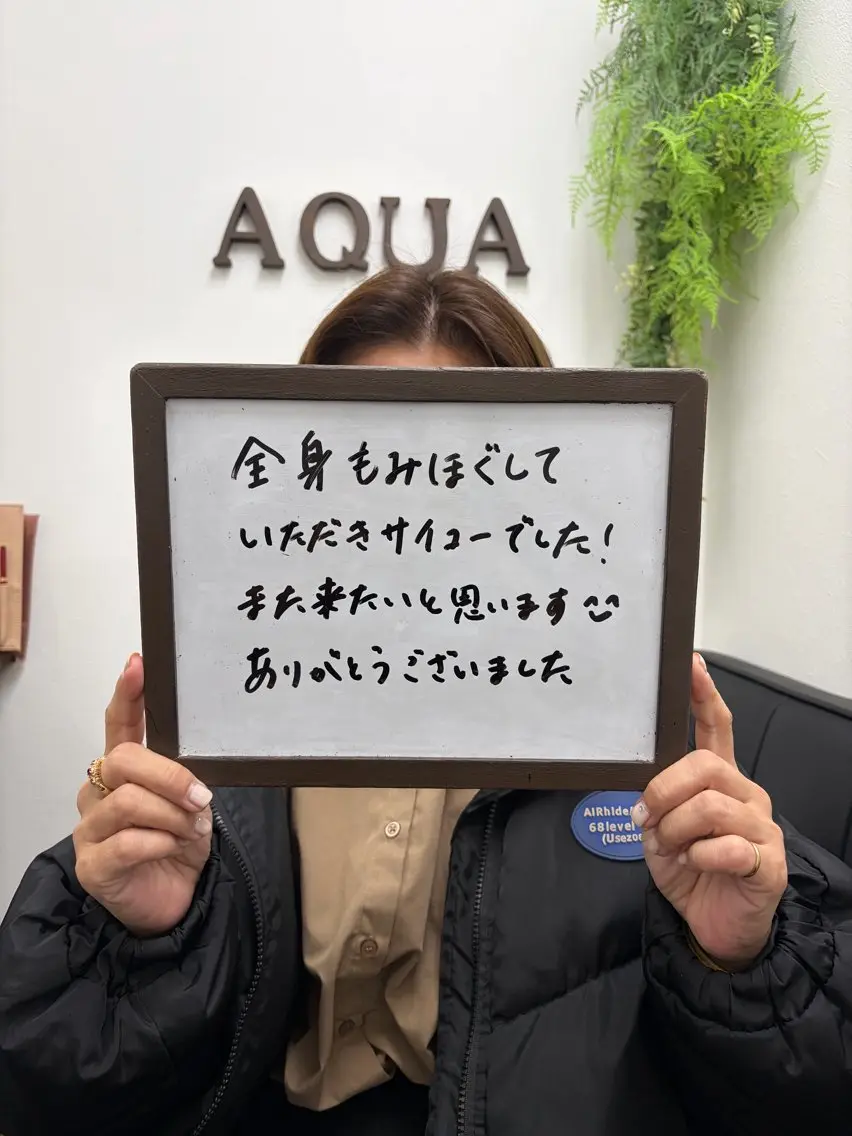 AQUA
全身もみほぐして
いただきサイコーでした!
また来たいと思います
ありがとうございました
68level
(Usezo